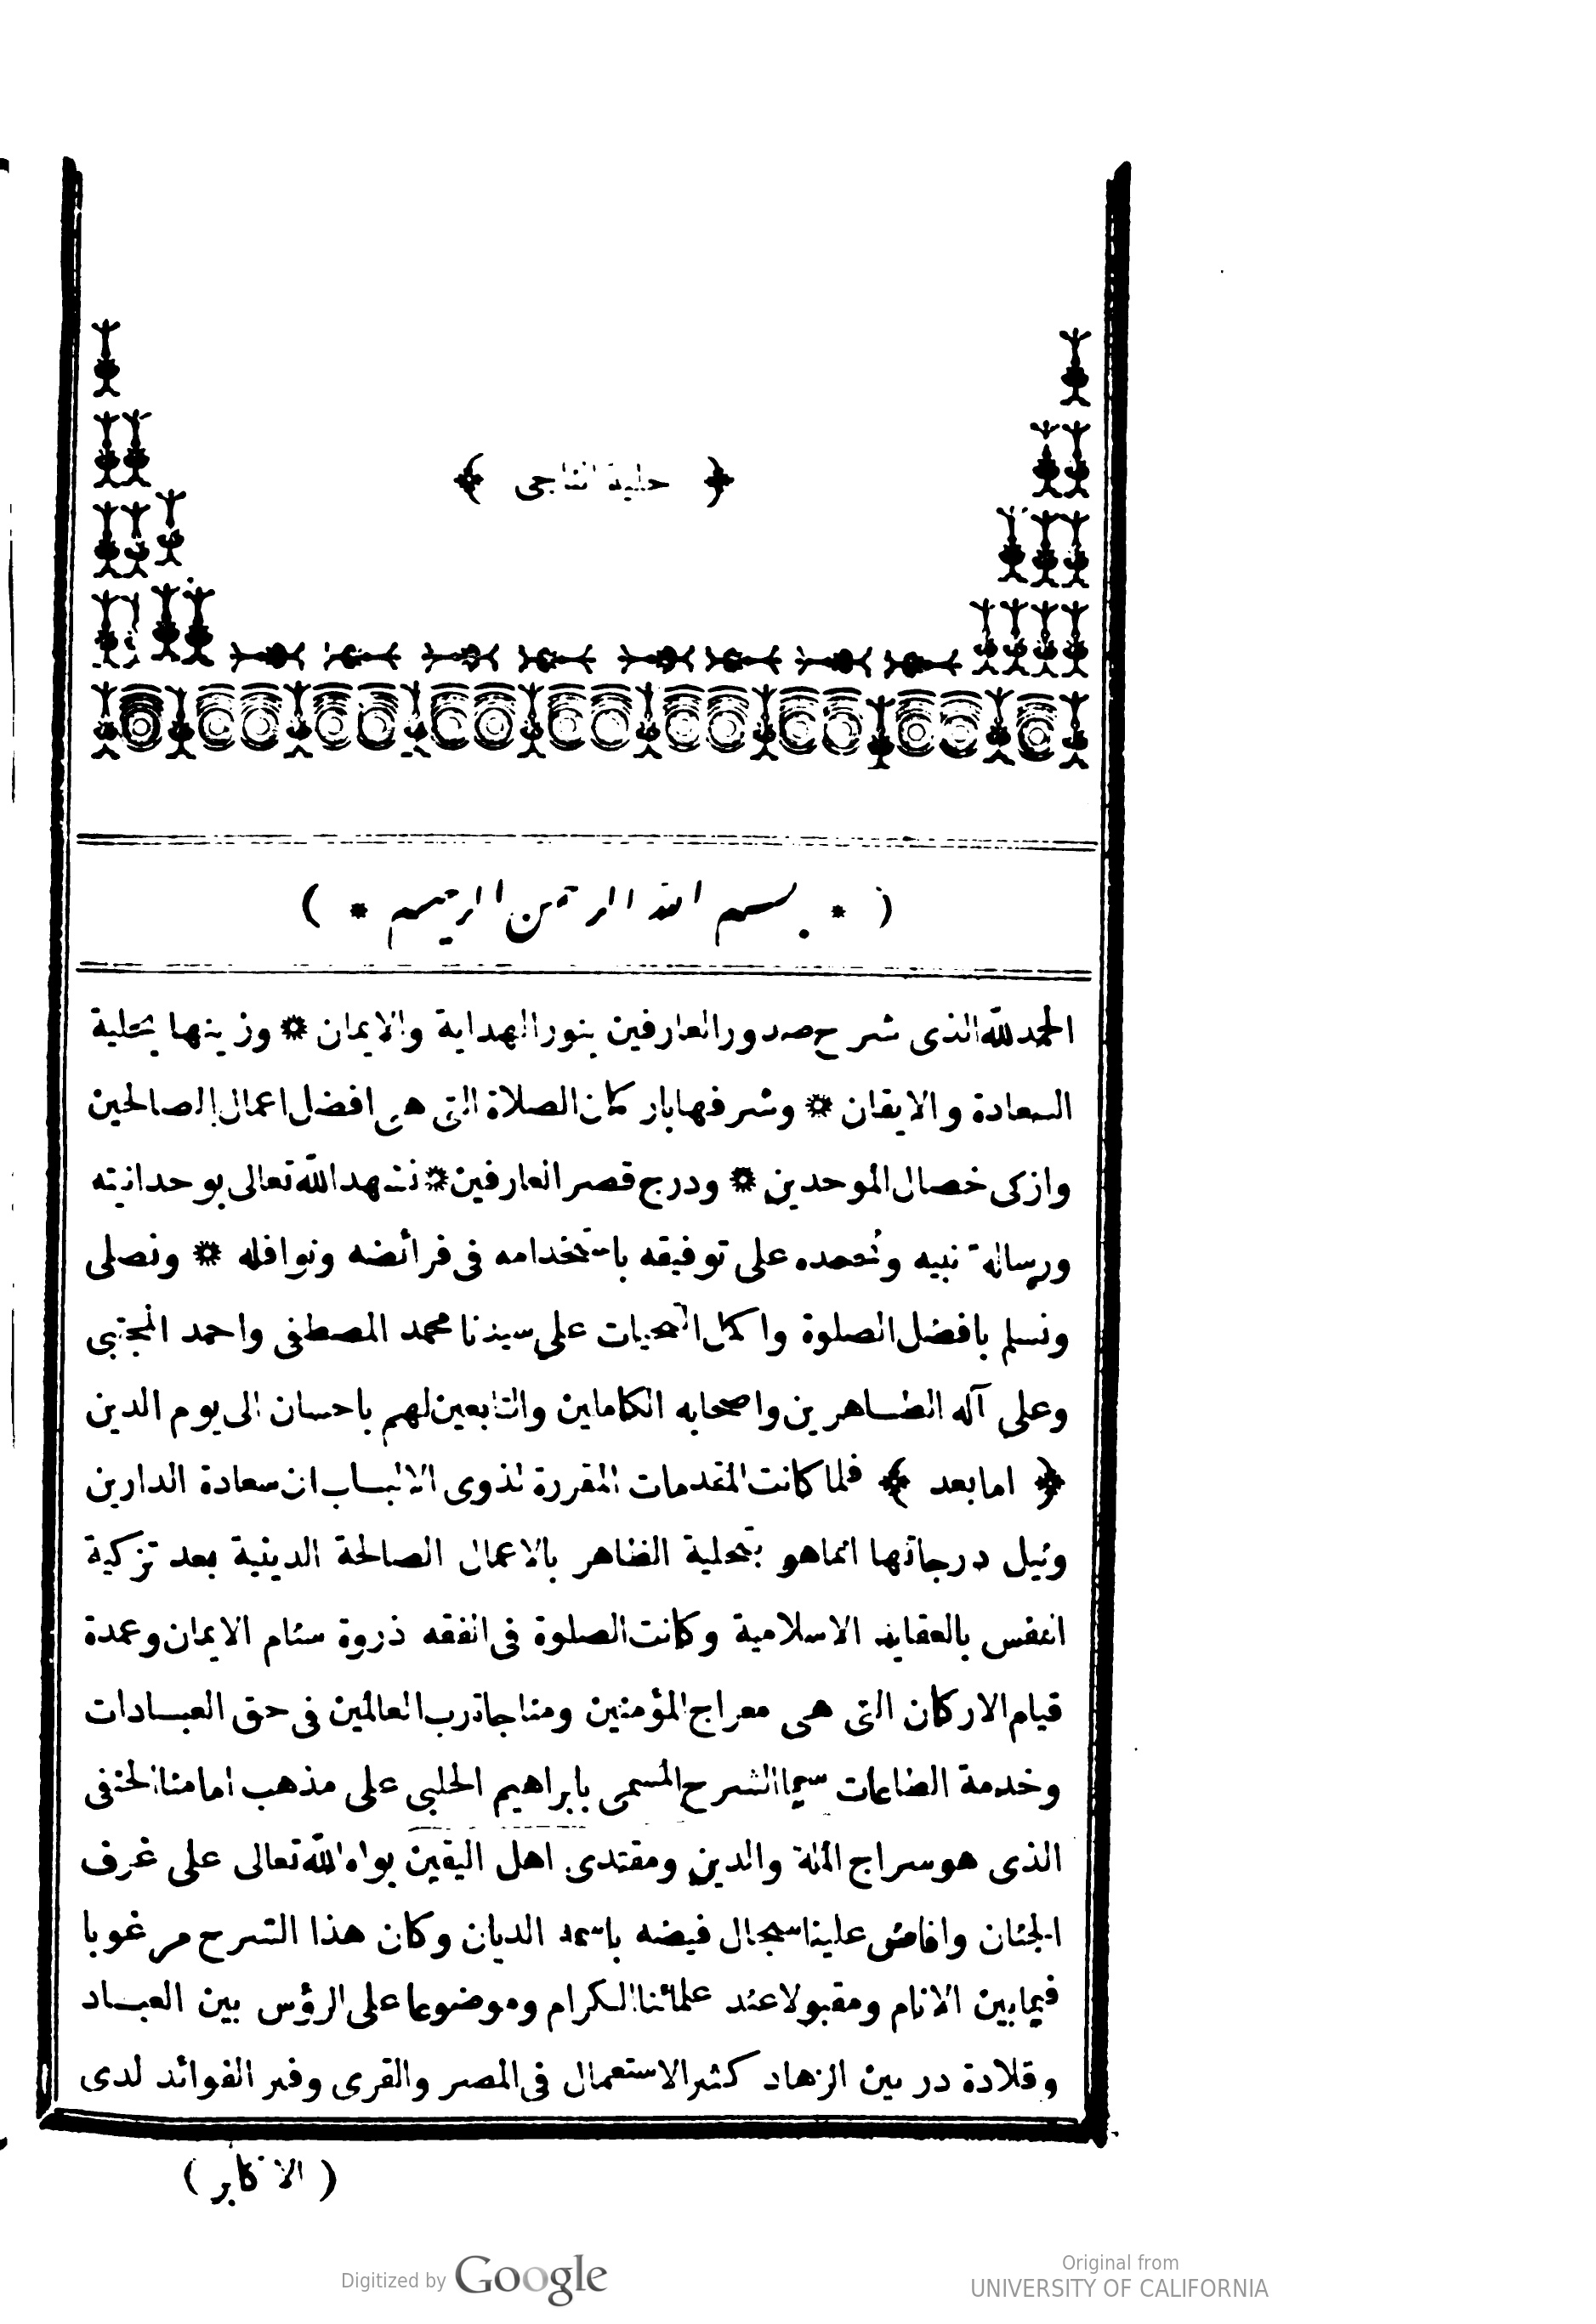 ﴿ حلية الناجى ﴾
( * بسم الله الرحمن الرحيم * )
الحمد لله الذى شرح صدور العارفين بنور الهداية والايمان * وزينها بحلية
السعادة والايقان * وشرفها باركان الصلاة التى هى افضل اعمال الصالحين
وازكى خصال الموحدين * ودرج قصر العارفين * نشهد الله تعالى بوحدانيته
ورسالة نبيه ونحمده على توفيقه باستخدامه فى فرائضه ونوافله * ونصلى
ونسلم بافضل الصلوة واكمل التحيات على سيدنا محمد المصطفى واحمد المجتبى
وعلى آله الطاهرين واصحابه الكاملين والتابعين لهم باحسان الى يوم الدين
﴿ اما بعد ﴾ فلما كانت المقدمات المقررة لذوى الالباب ان سعادة الدارين
ونيل درجاتها انما هو بتحلية الظاهر بالاعمال الصالحة الدينية بعد تزكية
النفس بالعقايد الاسلامية وكانت الصلوة فى الفقه ذروة سنام الايمان وعمدة
قيام الاركان التى هى معراج المؤمنين ومناجاة رب العالمين فى حق العبادات
وخدمة الطاعات سيما الشرح المسمى بابراهيم الحلبى على مذهب امامنا الحنفى
الذى هو سراج الملة والدين ومقتدى اهل اليقين بواه الله تعالى على غرف
الجنان وافاض علينا سجال فيضه باسمه الديان وكان هذا الشرح مرغوبا
فيما بين الانام ومقبولا عند علمائنا الكرام وموضوعا على الرؤس بين العباد
وقلادة در بين الزهاد كثير الاستعمال فى المصر والقرى وفير الفوائد لدى
( الاكابر )
Digitized by Google
Original from
UNIVERSITY OF CALIFORNIA